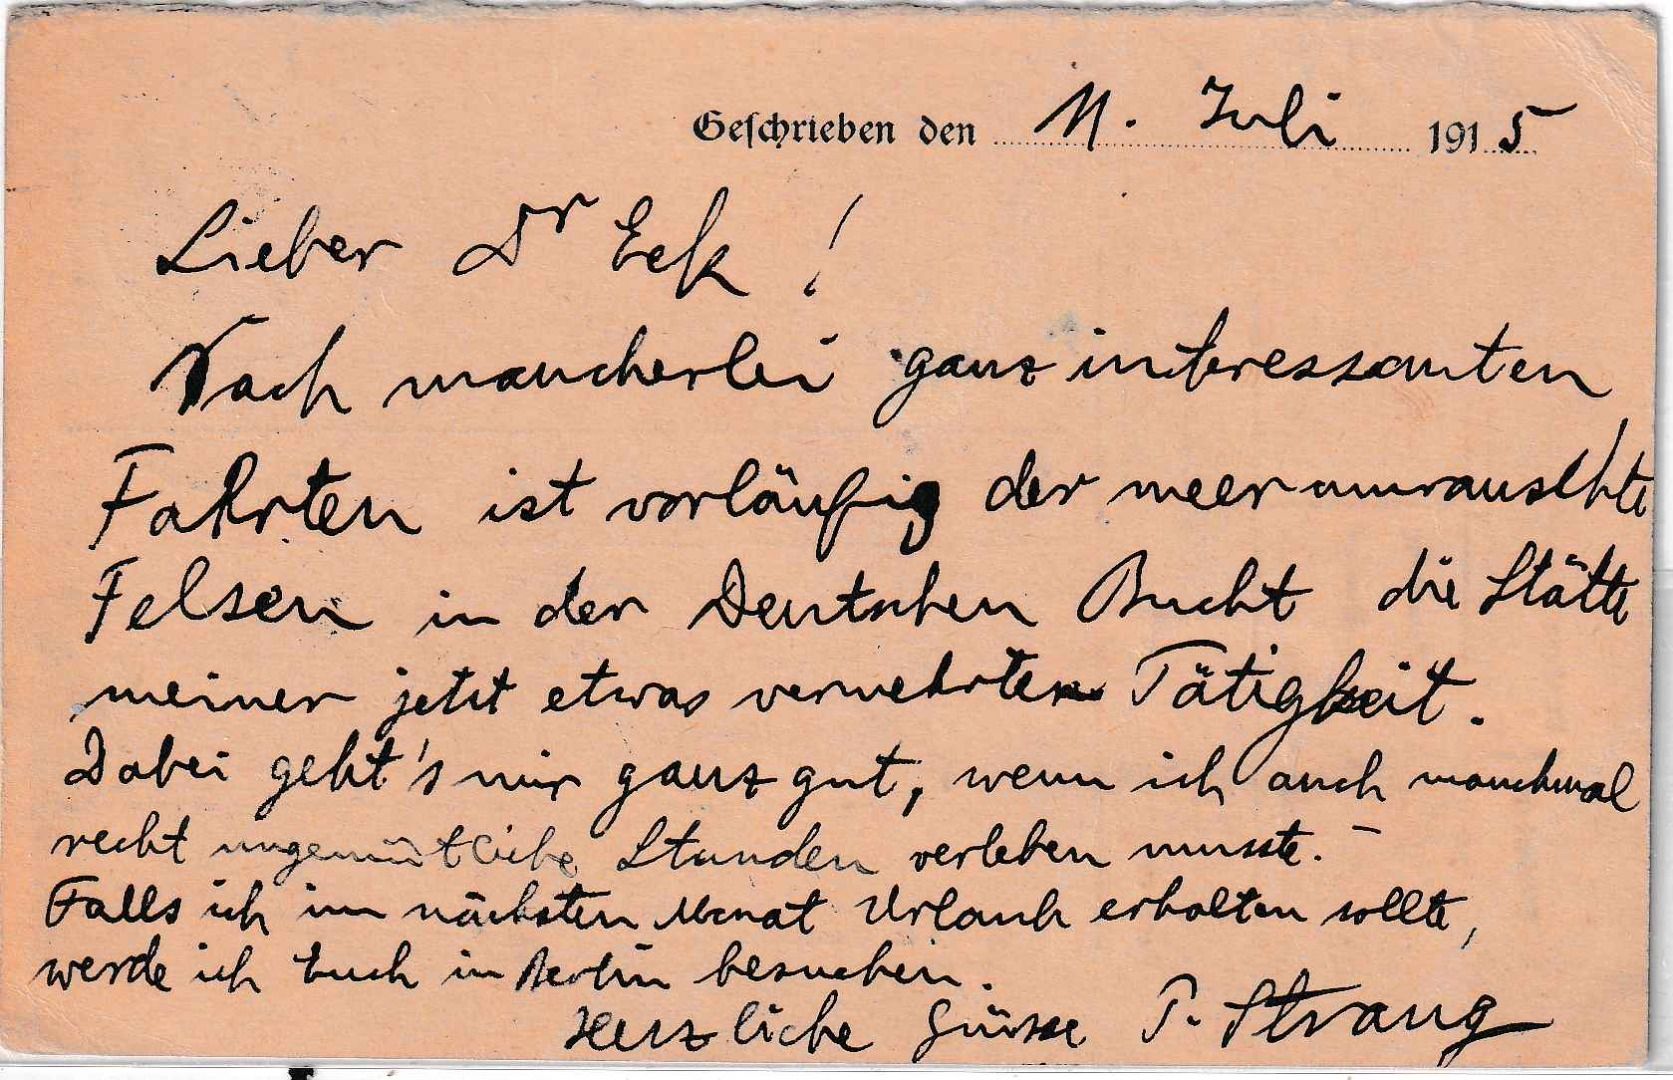 Geschrieben den 11. Juli 1915
Lieber Dr Eck!
Nach mancherlei ganz interessanten
Fahrten ist vorläufig der meerumrauschte
Felsen in der Deutschen Bucht die Stätte
meiner jetzt etwas vermehrten Tätigkeit.
Dabei geht's mir ganz gut, wenn ich auch manchmal
recht ungemütliche Stunden verleben musste. –
Falls ich im nächsten Monat Urlaub erhalten sollte,
werde ich Euch in Berlin besuchen.
Herzliche Grüsse P. Strang